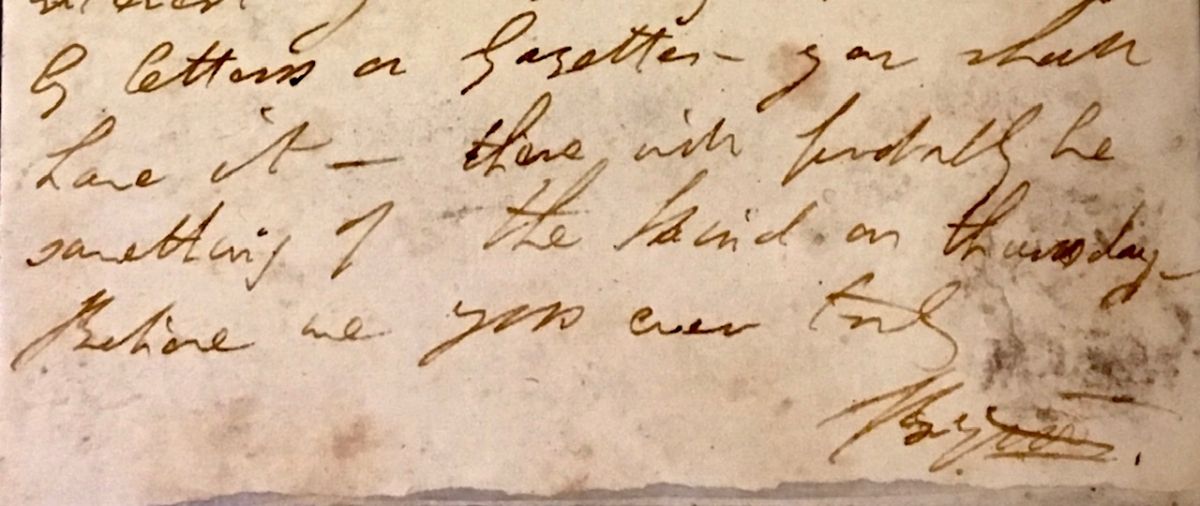 by letters or Gazettes – you shall
have it – there will probably be
something of the kind on thursday –
Believe me yrs ever truly
Byron